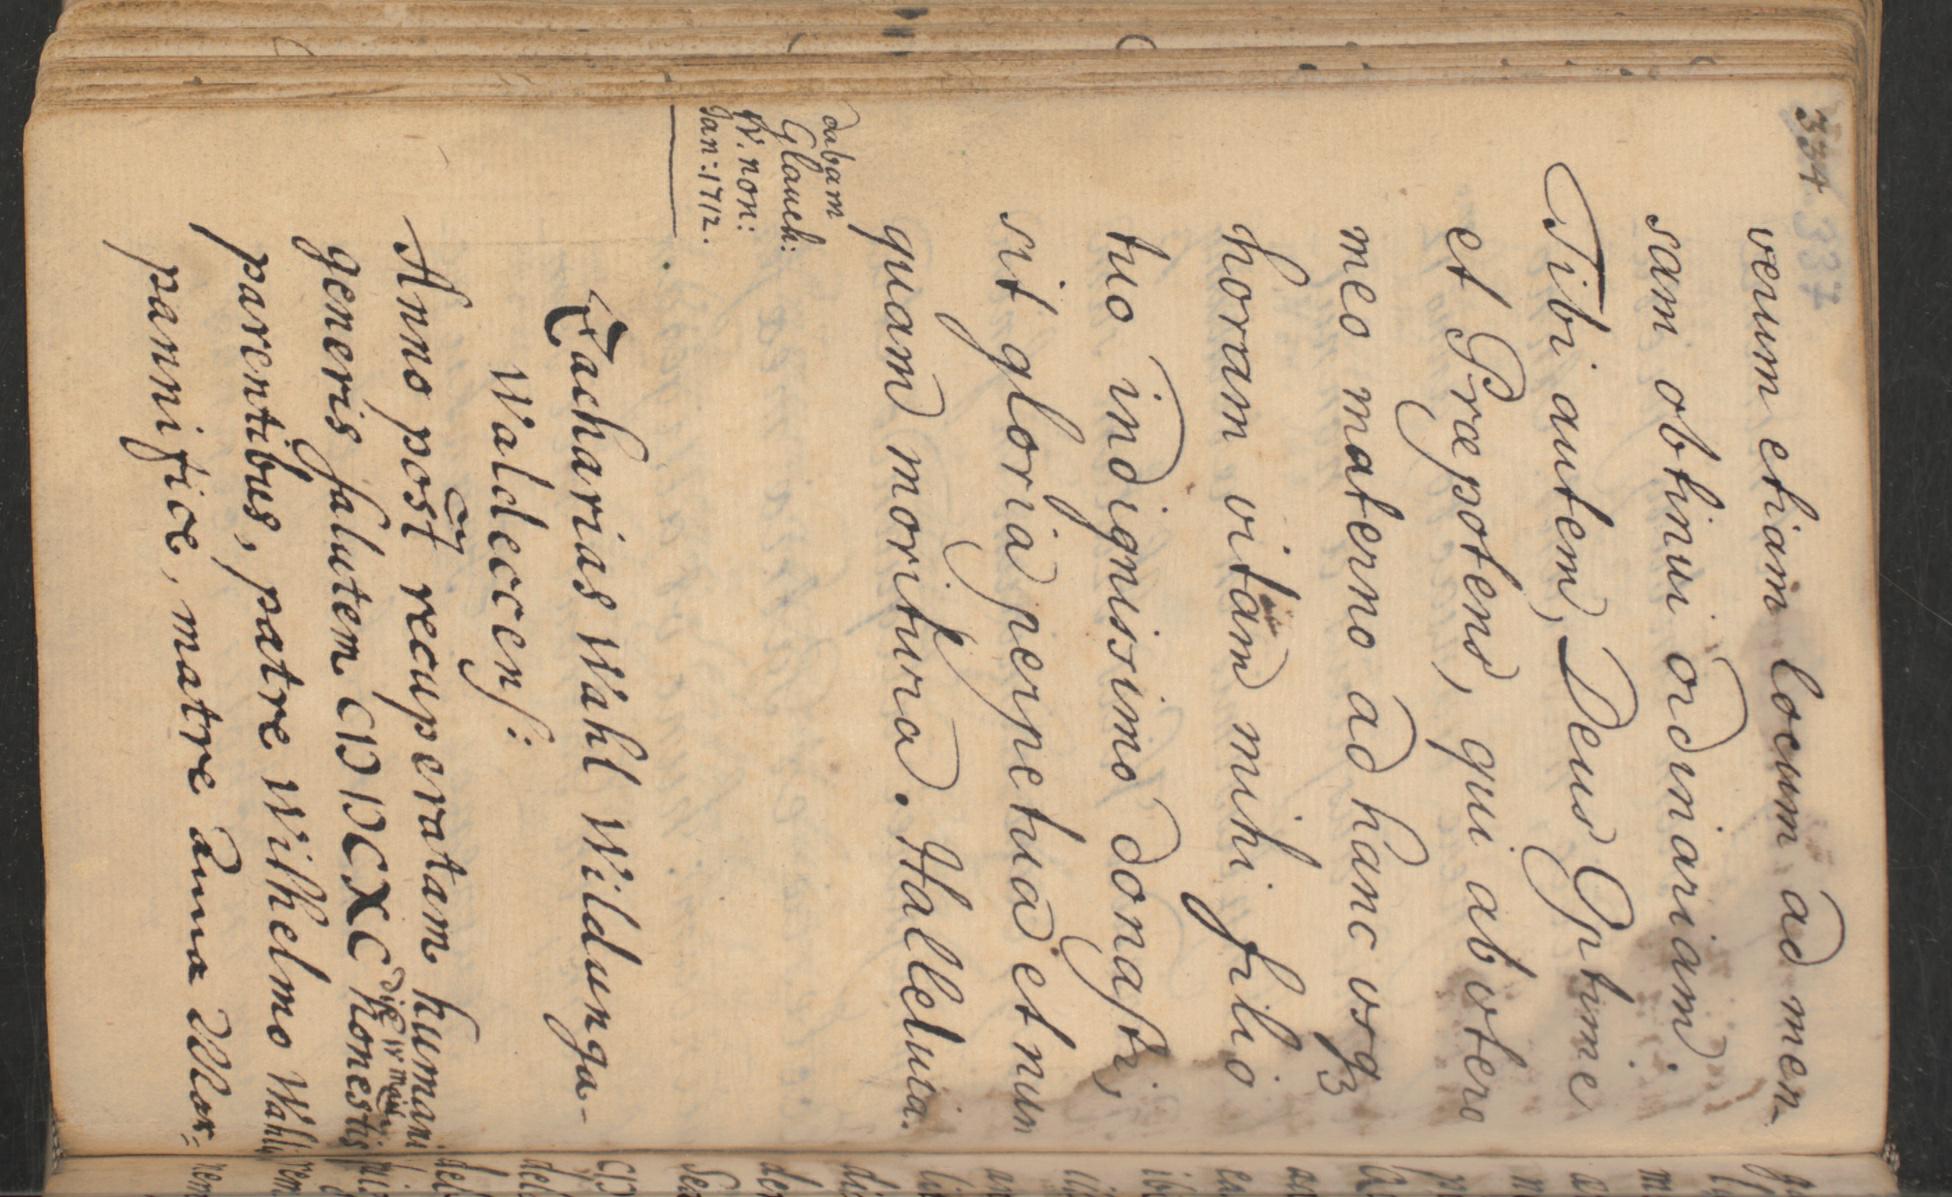 334
verum etiam locum ad men-
sam obtinui ordinariam.
Tibi autem, Deus Optime
et Præpotens, qui ab utero
meo materno ad hanc usqꝫ
horam vitam mihi filio
tuo indignissimo donasti,
sit gloria perpetua et nun
quam moritura. Halleluia.
dabam
Glauch:
IV. non:
Jan: 1712.
Zacharias Wahl Wildunga-
Waldeccens:
Anno post recuperatam humani
generis salutem CIƆ IƆC XC honestis
parentibus, patre Wilhelmo Wahl
pannifice, matre Anna Mar: